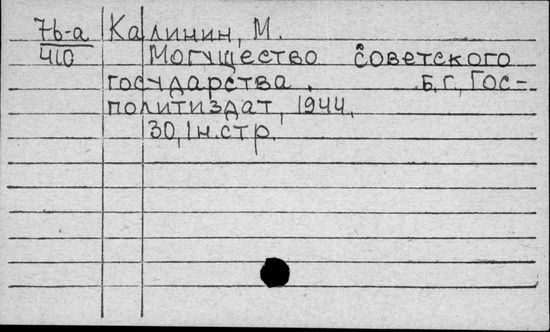 7б-а Калинин, М.
410 Могущество советского
государства. Б.г., Гос-
политиздат, 1944.
30, 1 н. стр.